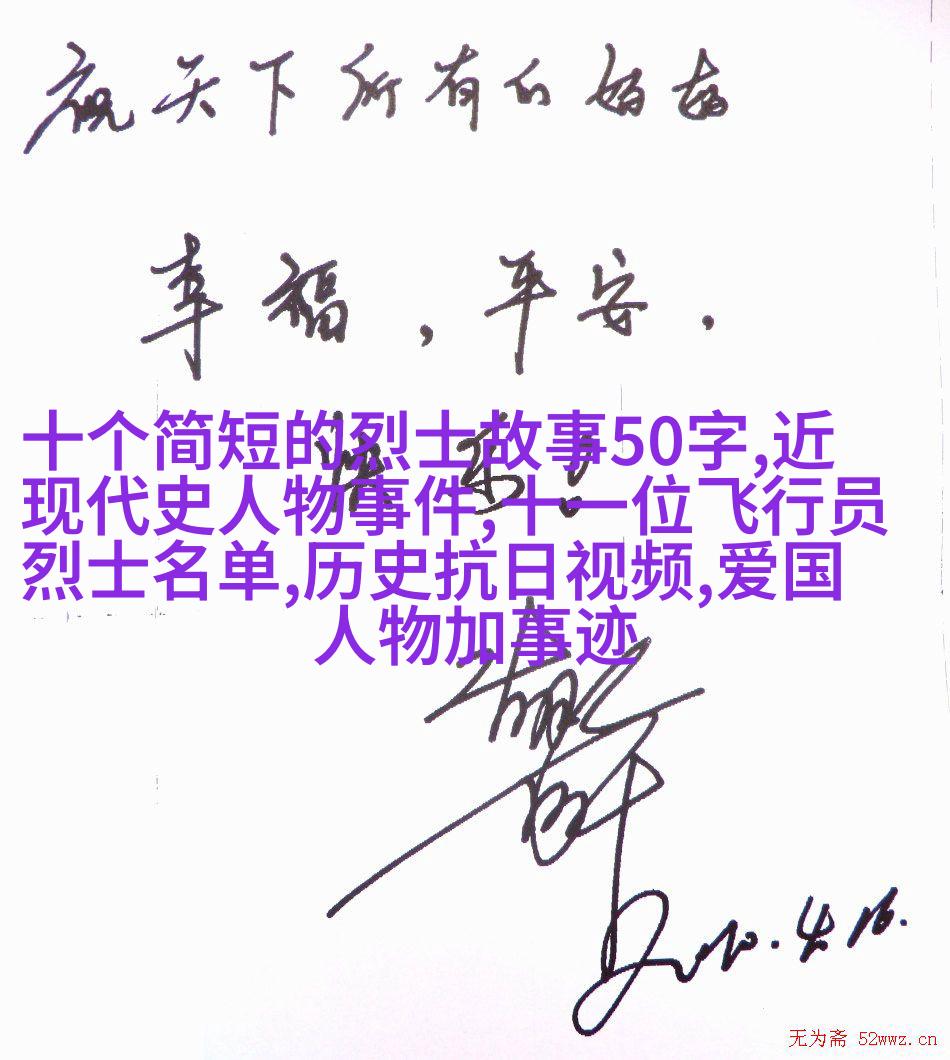 祝天下所有的妈妈
幸福，平安，
十个简短的烈士故事50字,近
现代史人物事件,十一位飞行员
烈士名单,历史抗日视频,爱国
人物加事迹
2010.4.16.
无为斋 52wwz.cn